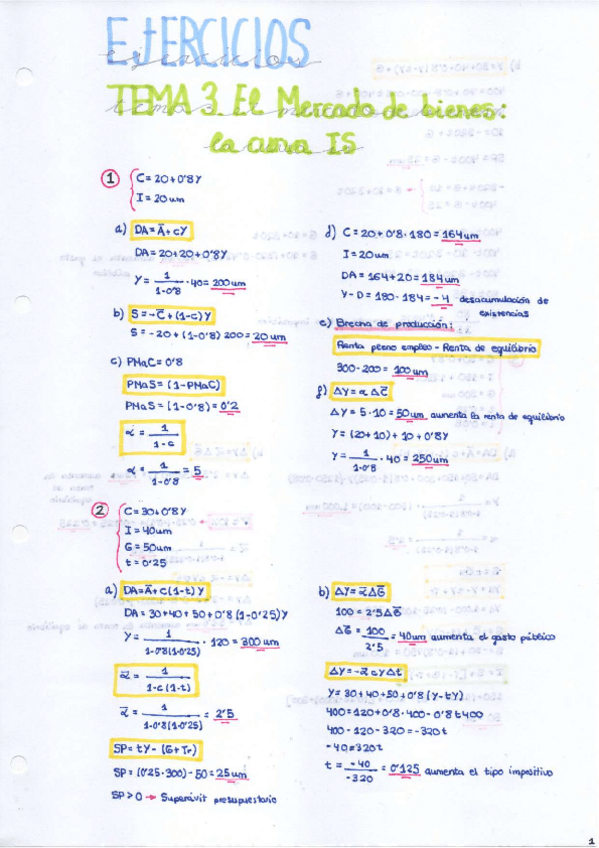 EJERCICIOS
ejercicios
TEMA 3. El Mercado de bienes:
la curva IS
1
C = 20 + 0'8 Y
I = 20 um
a) DA = A̅ + cY
DA = 20 + 20 + 0'8Y
Y = 1/(1-0'8) · 40 = 200 um
b) S = -C̅ + (1-c) Y
S = -20 + (1-0'8) 200 = 20 um
c) PMaC = 0'8
PMaS = (1-PMaC)
PMaS = (1-0'8) = 0'2
α = 1/(1-c)
α = 1/(1-0'8) = 5
d) C = 20 + 0'8 · 180 = 164 um
I = 20 um
DA = 164 + 20 = 184 um
Y-D = 180 - 184 = -4 desacumulación de
existencias
e) Brecha de producción:
Renta pleno empleo - Renta de equilibrio
300 - 200 = 100 um
f) ΔY = α ΔC̅
ΔY = 5 · 10 = 50 um aumenta la renta de equilibrio
Y = (20+10) + 10 + 0'8Y
Y = 1/(1-0'8) · 40 = 250 um
2
C = 30 + 0'8 Y
I = 40 um
G = 50 um
t = 0'25
a) DA = A̅ + c(1-t) Y
DA = 30 + 40 + 50 + 0'8 (1-0'25) Y
Y = 1/(1-0'8(1-0'25)) · 120 = 300 um
α̅ = 1/(1-c(1-t))
α̅ = 1/(1-0'8(1-0'25)) = 2'5
SP = tY - (G + Tr)
SP = (0'25 · 300) - 50 = 25 um
SP > 0 → Superávit presupuestario
b) ΔY = α̅ ΔG̅
100 = 2'5 ΔG̅
ΔG̅ = 100/2'5 = 40 um aumenta el gasto público
ΔY = -α̅ c Y Δt
Y = 30 + 40 + 50 + 0'8 (Y - tY)
400 = 120 + 0'8 · 400 - 0'8 t 400
400 - 120 - 320 = -320 t
-40 = 320 t
t = -40/-320 = 0'125 aumenta el tipo impositivo
1